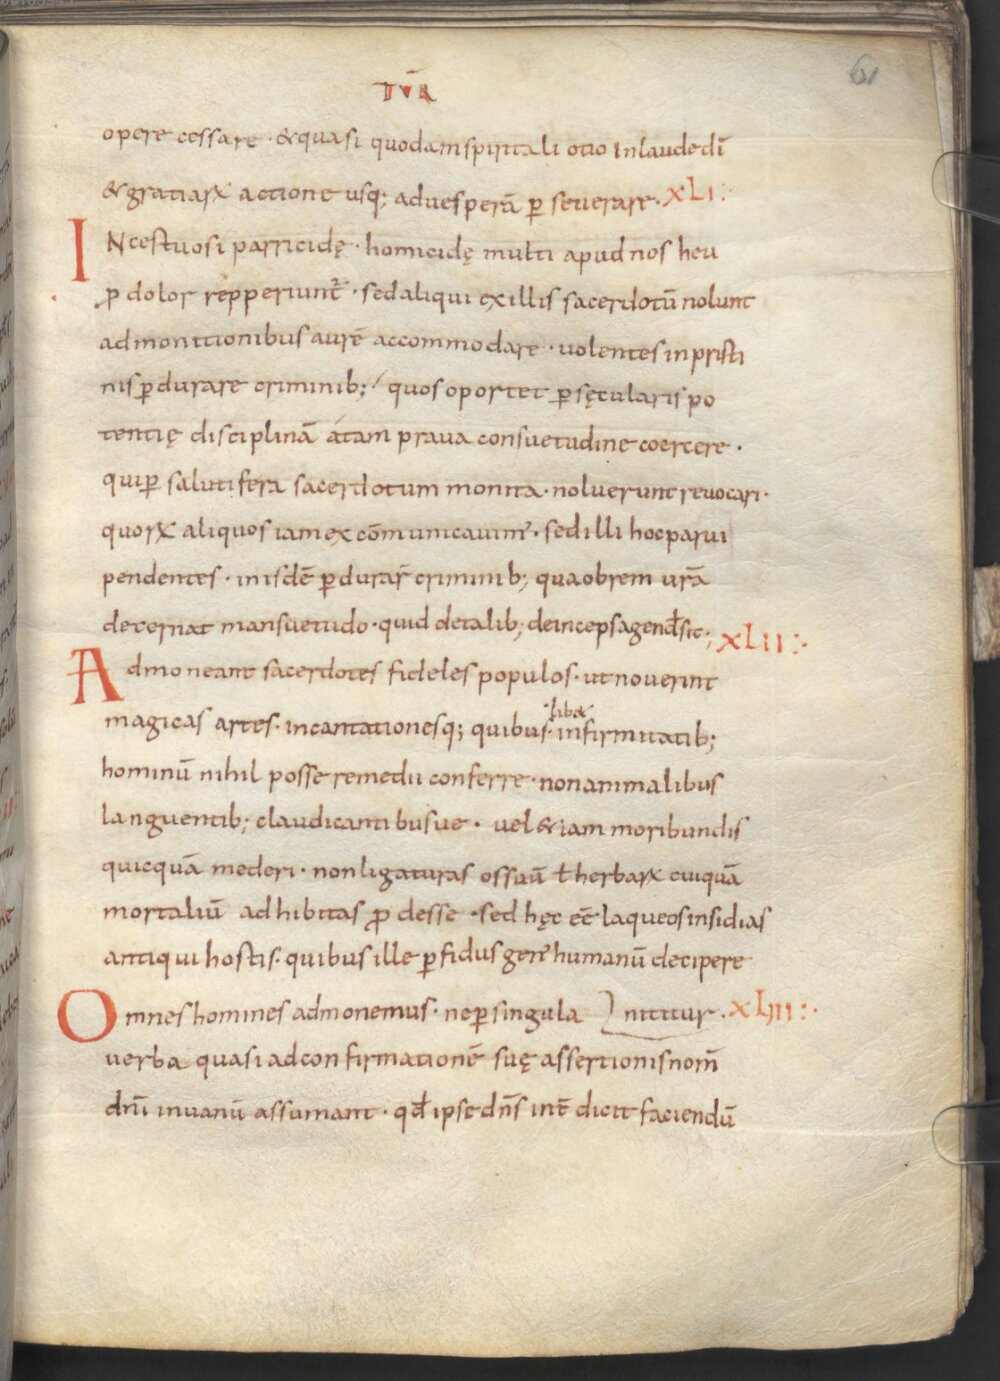 61
TVR̄
opere cessare · &quasi quodam spiritali otio In laude dī
& gratiarꝝ actione usq; ad uesperā ꝑseuerare · XLI :·
INcestuosi parricidę · homicidę multi apud nos heu
ꝓ dolor repperiunt᷑ · sed aliqui ex illis sacerdotū nolunt
admonitionibus aurē accommodare · uolentes in pristi
nis ꝑdurare criminib; · quos oportet ꝑ sęcularis po
tentię disciplinā a tam praua consuetudine coercere ·
qui ꝑ salutifera sacerdotum monita · noluerunt reuocari ·
quorꝝ aliquos iam excōmunicauim᾽ · sed illi hoc parui
pendentes · in isdē ꝑdurar̄ criminib; quaobrem urā
decernat mansuetudo · quid de talib; deinceps agend̄ sit ; XLII :·
Admoneant sacerdotes fideles populos · ut nouerint
magicas artes · incantationesq; quibus · lib& · infirmitatib;
hominū nihil posse remedii conferre · non animalibus
languentib; claudicantibusue · uel &iam moribundis
quicquā mederi · non ligaturas ossuū ł herbarꝝ cuiquā
mortaliū adhibitas ꝓdesse · sed hęc eē laqueos insidias
antiqui hostis · quibus ille ꝑfidus gen᾽ humanū decipere
nititur · XLIII :·
Omnes homines admonemus · ne ꝑ singula
uerba quasi ad confirmationē suę assertionis nom̄
dn̄i in uanū assumant · qd̄ ipse dn̄s int̄ dicit faciendū